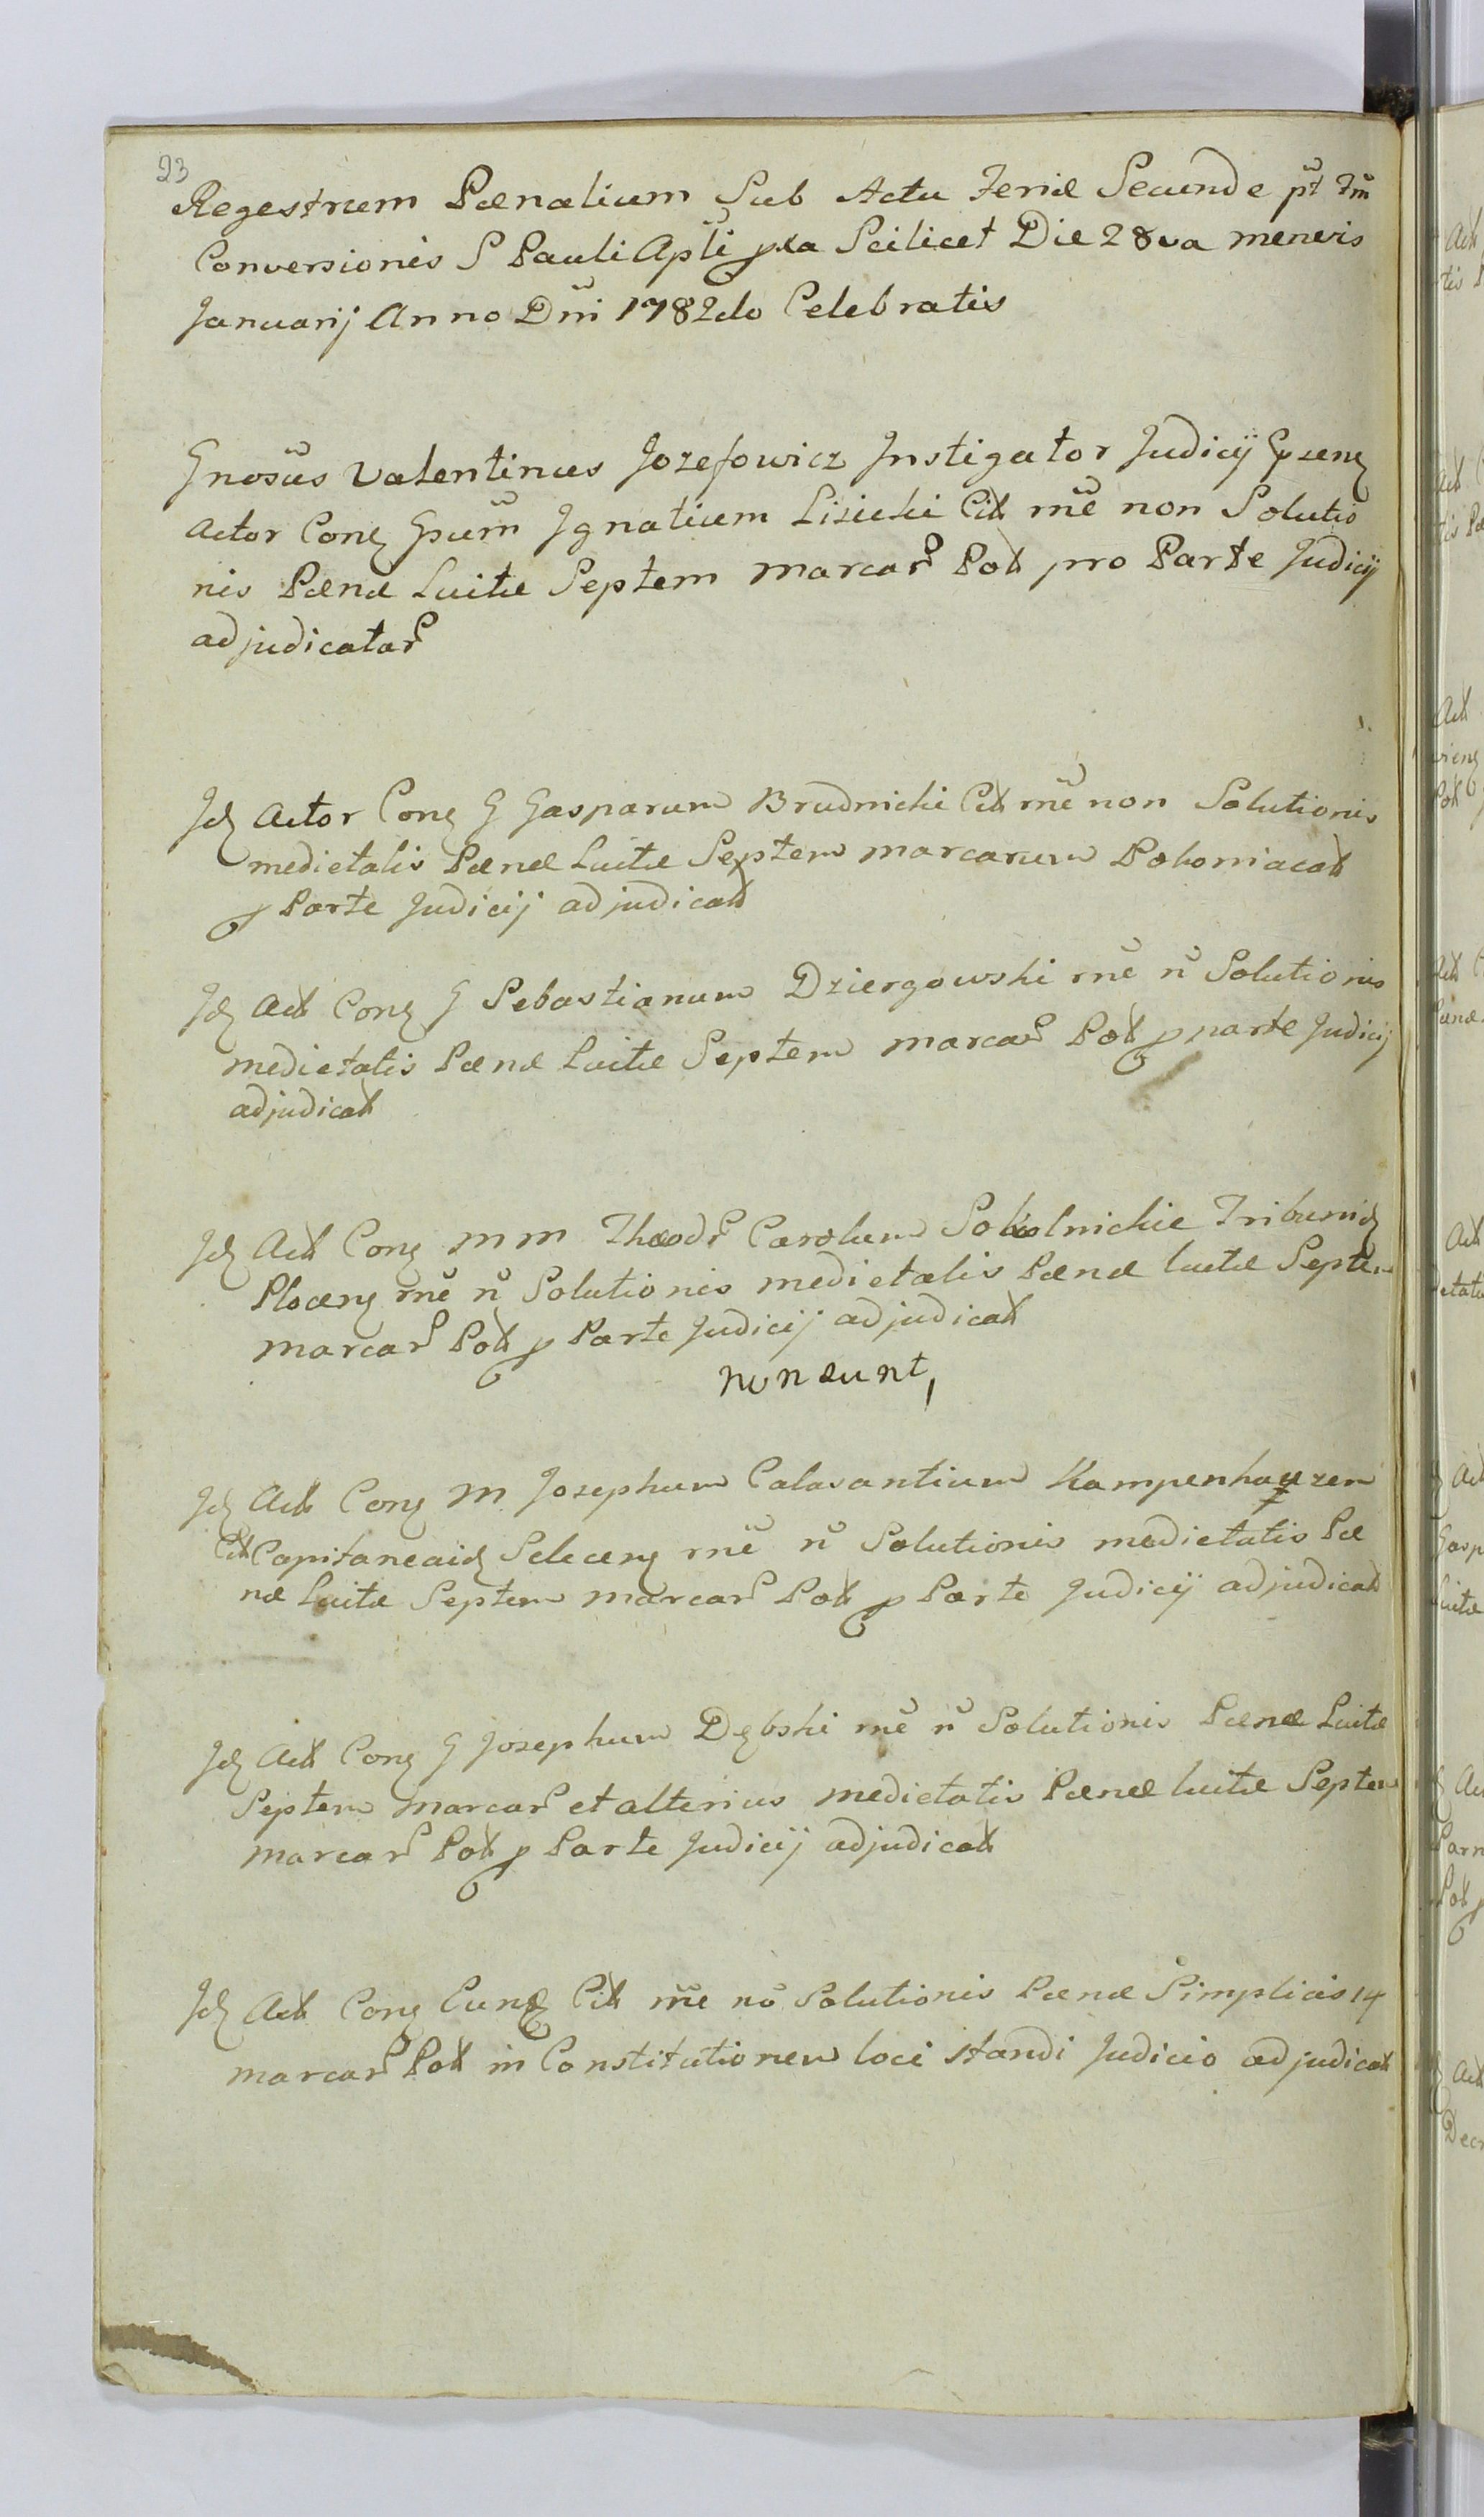 23
Regestrum Pænalium Sub Actu Feriæ Secundæ pt Fm
Conversionis S Pauli Apli pxa Scilicet Die 28va mensis
Januarij Anno Dni 1782do Celebratis
Gnosus Valentinus Jozefowicz Instigator Judicij
Actor Con Gsum Ignatium Lisicki Cit rne non Solutio
nis Pænæ Luitæ Septem marcar Pol pro Parte Judicij
adjudicatar
Id Actor Con G Gasparum Brudnicki Cit rne non Solutionis
medietatis Pænæ Luitæ Septem marcarum Polonicat
p Parte Judicij adjudicat
Id Act Con G Sebastianum Dziergowski rne n Solutionis
medietatis Pænæ Luitæ Septem marcar Pol p parte Judicij
adjudicat
Id Act Con MM Theodr Carolum Sokolnickie Tribunid
Plocen rne n Solutionis medietatis Pænæ luitæ Septem
marcar Pol p Parte Judicij adjudicat
non sunt,
Id Act Con M Josephum Calasantium Kampenhauzen
Cit Capitaneaid rne n Solutionis medietatis Pæ
næ Luitæ Septem marcar Pol p Parte Judicij adjudicat
Id Act Con G Josephum Dębski rne n Solutionis Pænæ Luitæ
Septem marcar et alterius medietatis Pænæ luitæ Septem
marcar Pol p Parte Judicij adjudicat
Id Act Con Eund Cit rne no Solutionis Pænæ Simplicis 14
marcar Pol in Constitutionem loci standi Judicio adjudicat